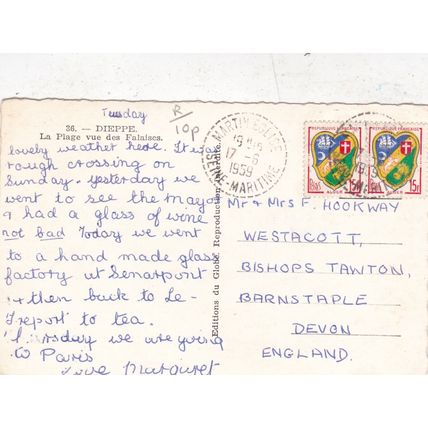 Tuesday
R/10p
36. — DIEPPE.
La Plage vue des Falaises.
lovely weather here. It was
rough crossing on
Sunday. yesterday we
went to see the mayor
& had a glass of wine
not bad Today we went
to a hand made glass
factory at Senarpont
& then back to Le-
Treport to tea.
Thursday we are going
to Paris
Love Margaret
Editions du Globe. Reproduction interdite.
MARTIN-EGLISE
17-6
1959
SEINE-MARITIME
REPUBLIQUE FRANÇAISE
ALGER
15F
REPUBLIQUE FRANÇAISE
ALGER
15F
Mr & Mrs F. HOOKWAY
WESTACOTT,
BISHOPS TAWTON,
BARNSTAPLE
DEVON
ENGLAND.